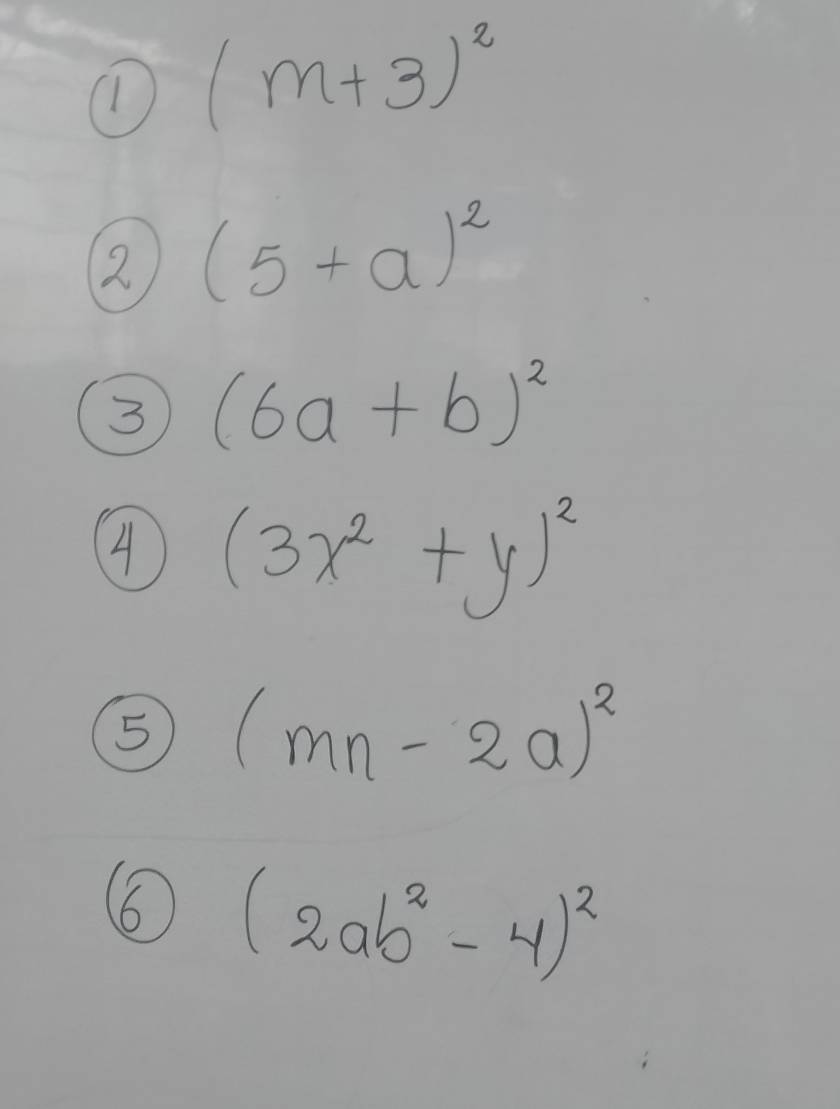 ① (m+3)²
② (5+a)²
③ (6a+b)²
④ (3x²+y)²
⑤ (mn-2a)²
⑥ (2ab²-4)²